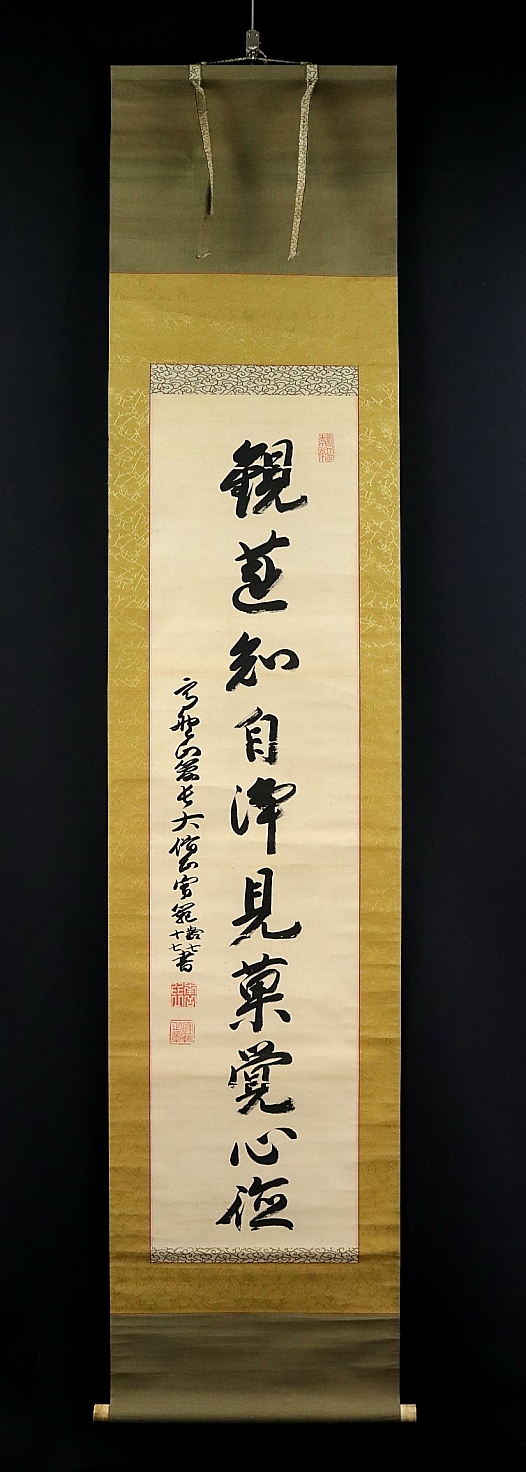 観蓮知自浄見菓覚心徳
高野山管長大僧正宥範齢七十七書